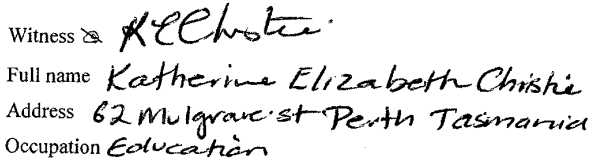 Witness KEChristie.
Full name Katherine Elizabeth Christie
Address 62 Mulgrave st Perth Tasmania
Occupation Education